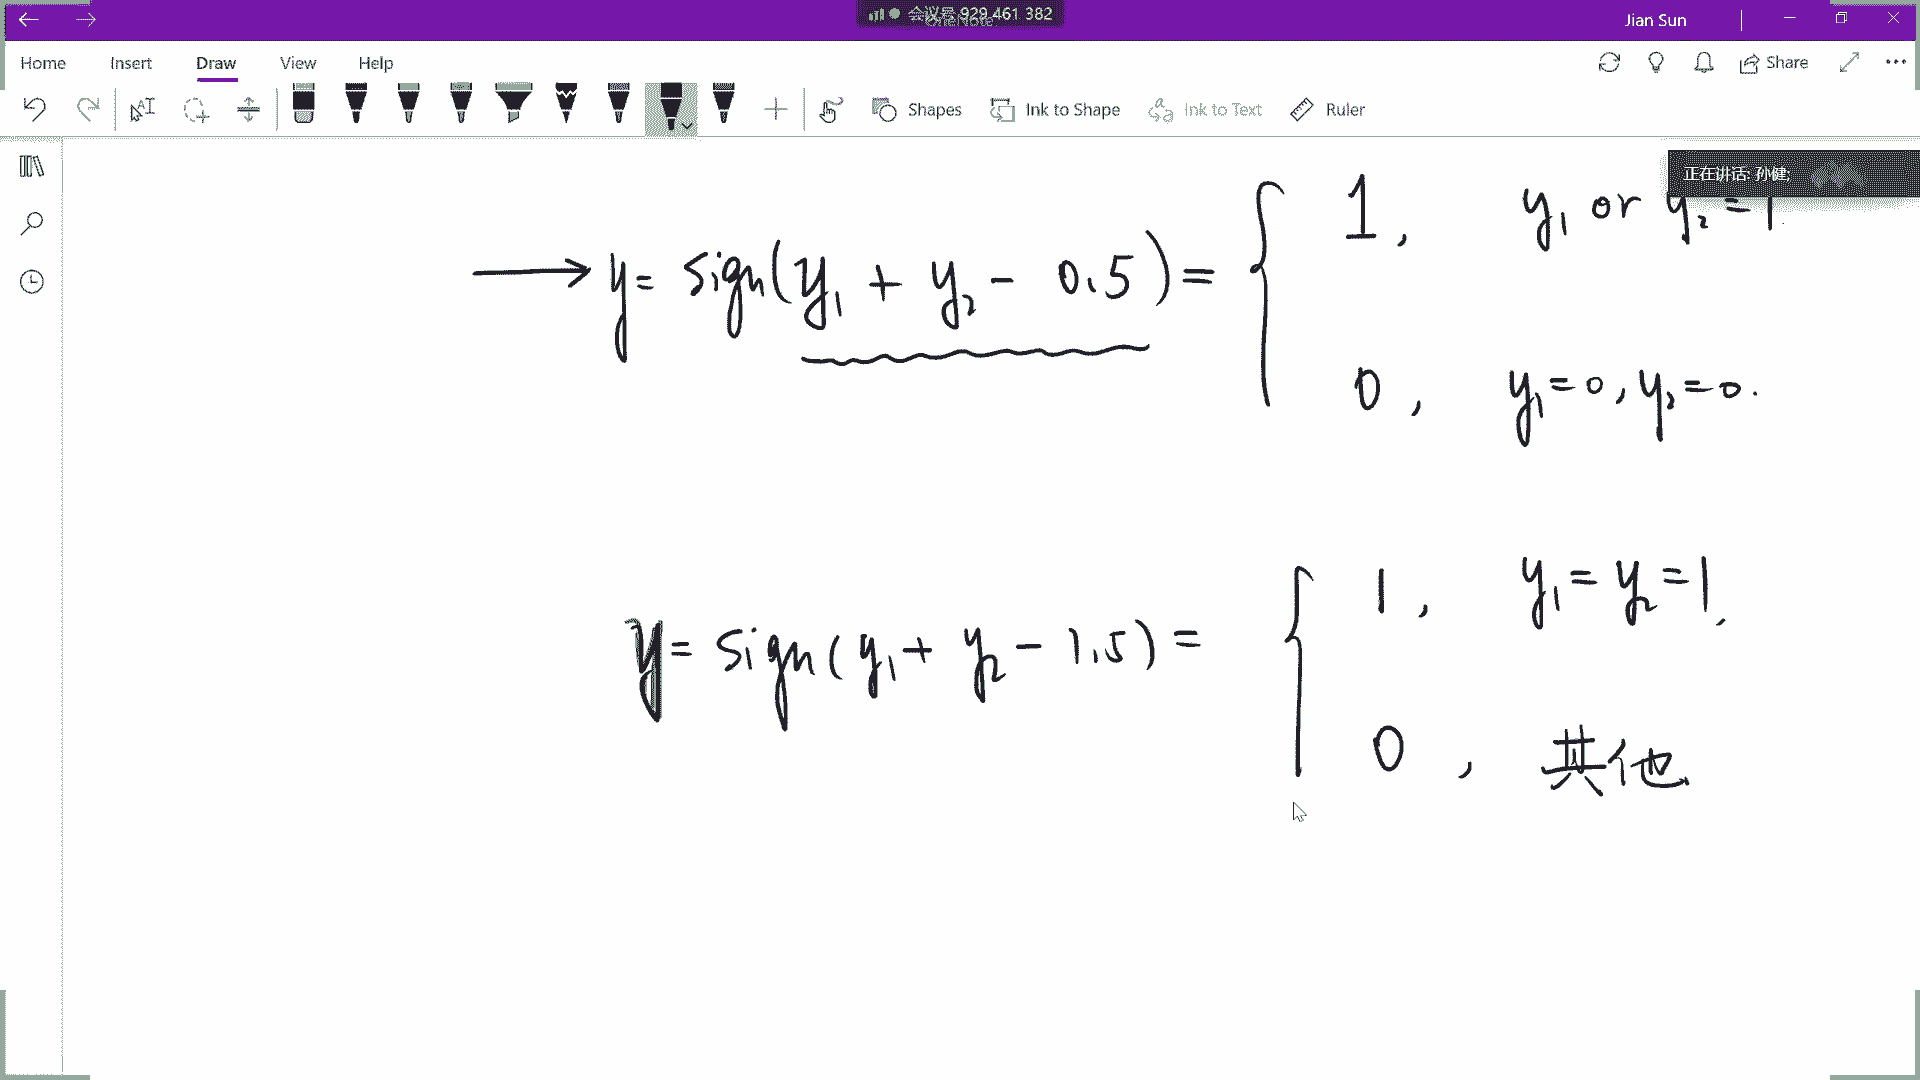 会议号 929 461 382
OneNote
Jian Sun
Home Insert Draw View Help
Share
Shapes Ink to Shape Ink to Text Ruler
正在讲话: 孙健;
→ y = sign(y₁ + y₂ - 0.5) = { 1, y₁ or y₂ = 1
0, y₁=0, y₂=0.
y = sign(y₁ + y₂ - 1.5) = { 1, y₁ = y₂ = 1.
0, 其他